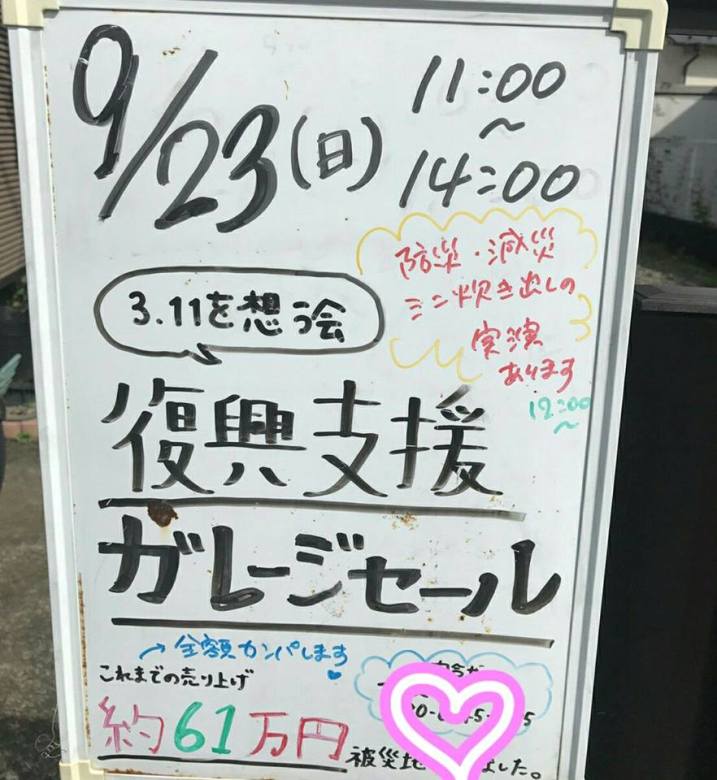 9/23(日)
11:00
~
14:00
防災・減災
ミニ炊き出しの
実演
あります
12:00
~
3.11を想う会
復興支援
ガレージセール
→全額カンパします
これまでの売り上げ
約61万円
被災地
した。